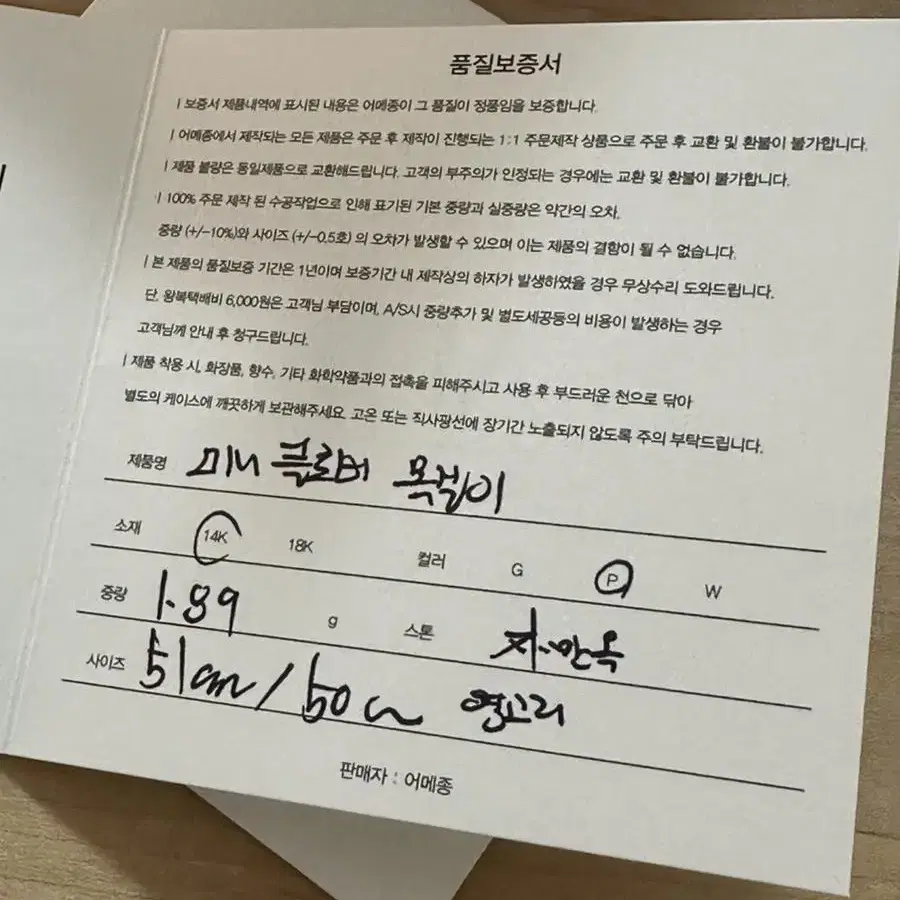 품질보증서
| 보증서 제품내역에 표시된 내용은 어메종이 그 품질이 정품임을 보증합니다.
| 어메종에서 제작되는 모든 제품은 주문 후 제작이 진행되는 1:1 주문제작 상품으로 주문 후 교환 및 환불이 불가합니다.
| 제품 불량은 동일제품으로 교환해드립니다. 고객의 부주의가 인정되는 경우에는 교환 및 환불이 불가합니다.
| 100% 주문 제작 된 수공작업으로 인해 표기된 기본 중량과 실중량은 약간의 오차.
중량 (+/-10%)와 사이즈 (+/-0.5호) 의 오차가 발생할 수 있으며 이는 제품의 결함이 될 수 없습니다.
| 본 제품의 품질보증 기간은 1년이며 보증기간 내 제작상의 하자가 발생하였을 경우 무상수리 도와드립니다.
단, 왕복택배비 6,000원은 고객님 부담이며, A/S시 중량추가 및 별도세공등의 비용이 발생하는 경우
고객님께 안내 후 청구드립니다.
| 제품 착용 시, 화장품, 향수, 기타 화학약품과의 접촉을 피해주시고 사용 후 부드러운 천으로 닦아
별도의 케이스에 깨끗하게 보관해주세요. 고온 또는 직사광선에 장기간 노출되지 않도록 주의 부탁드립니다.
제품명 미니 클로버 목걸이
소재 14K 18K 컬러 G P W
중량 1.89 g 스톤
사이즈 51cm / 50c 연고리
판매자 : 어메종